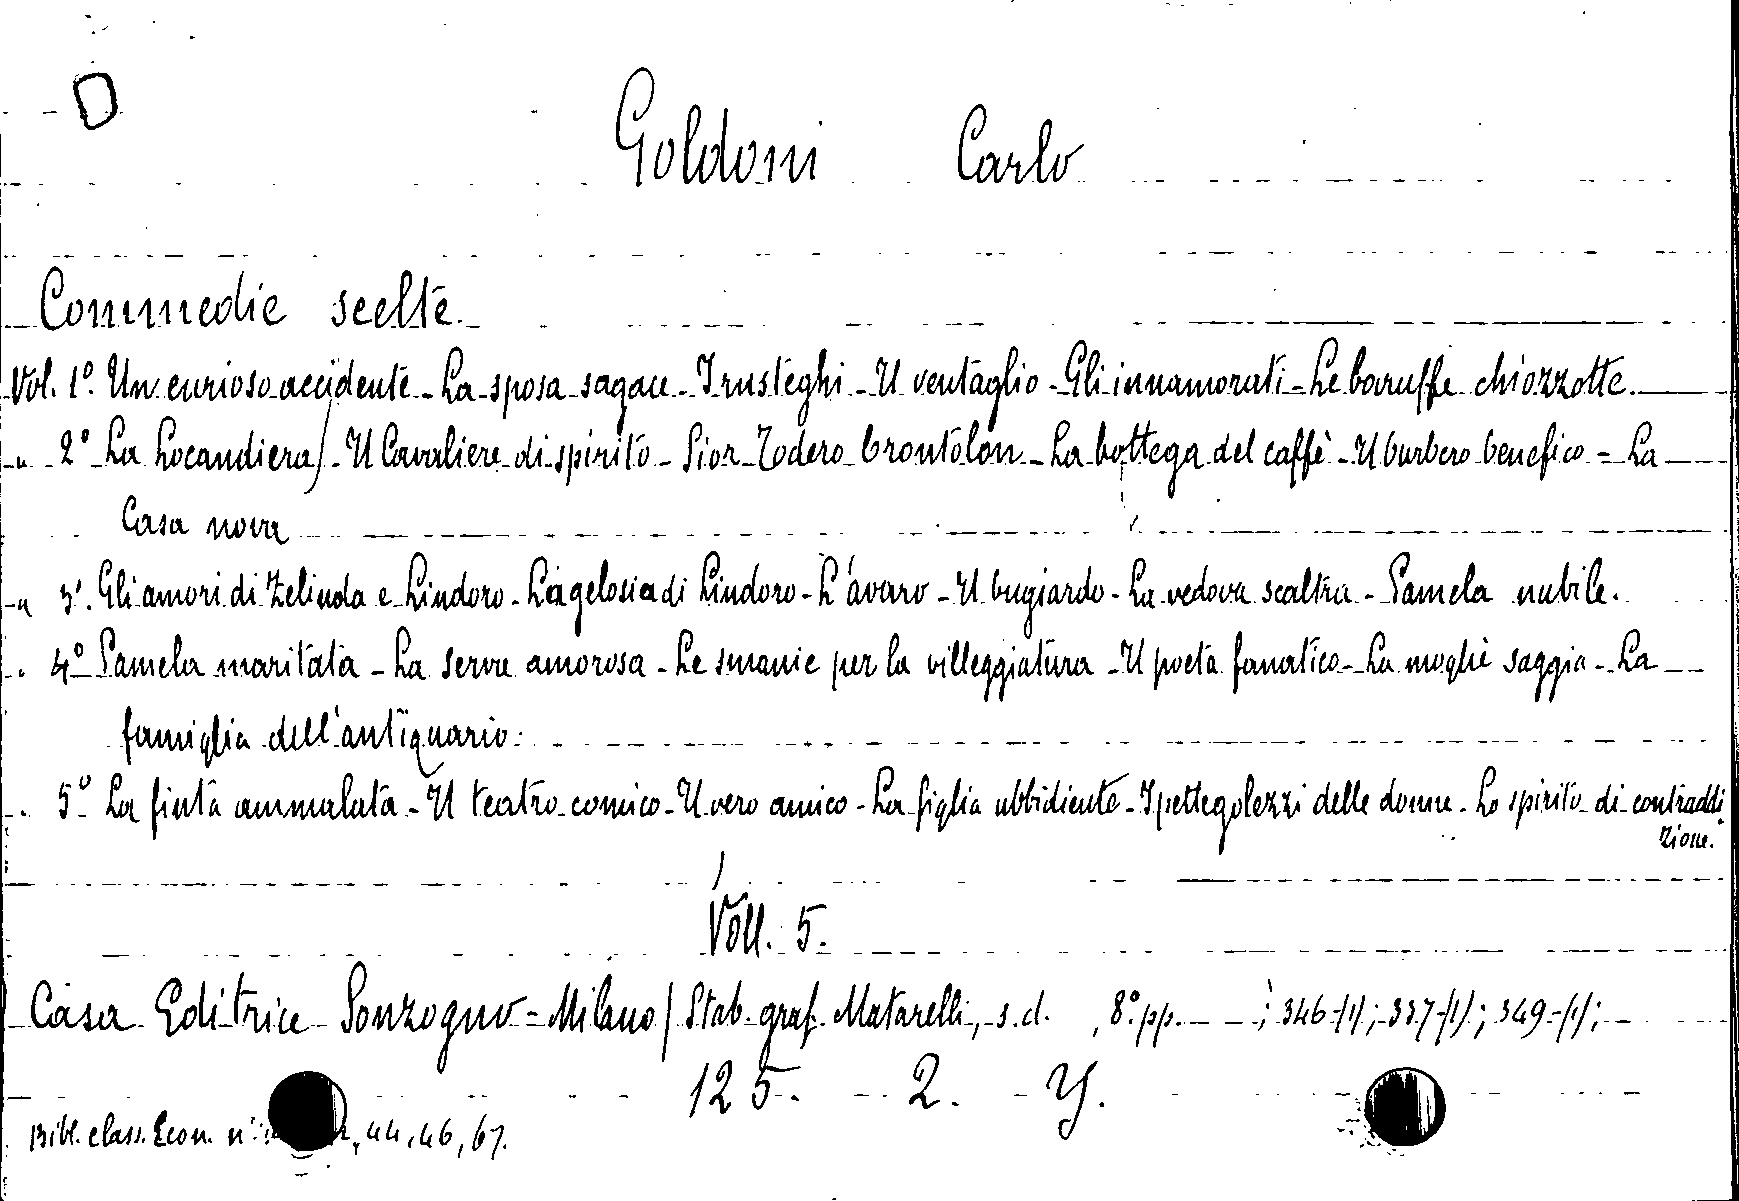 Goldoni Carlo
Commedie scelte.
Vol. 1º. Un curioso accidente - La sposa sagace - I rusteghi - Il ventaglio - Gli innamorati - Le baruffe chiozzotte.
" 2º La Locandiera - Il Cavaliere di spirito - Sior Todero brontolon - La bottega del caffè - Il burbero benefico - La
Casa nova
" 3º. Gli amori di Zelinda e Lindoro - La gelosia di Lindoro - L'avaro - Il bugiardo - La vedova scaltra - Pamela nubile.
" 4º Pamela maritata - La serva amorosa - Le smanie per la villeggiatura - Il poeta fanatico - La moglie saggia - La
famiglia dell'antiquario.
" 5º La finta ammalata - Il teatro comico - Il vero amico - La figlia ubbidiente - I pettegolezzi delle donne - Lo spirito di contraddi
zione.
Voll. 5.
Casa Editrice Sonzogno - Milano / Stab. graf. Matarelli, s.d. , 8º. pp. ; 346-/1/; 337-/1/; 349-/1/;
125. 2. Y.
Bibl. class. Econ. nⁱ , 44, 46, 67.